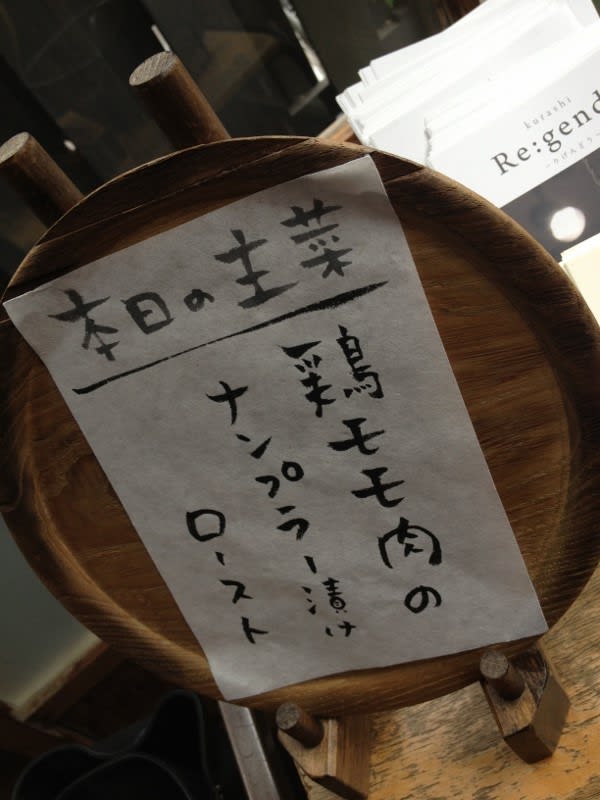 本日の主菜
鶏モモ肉の
ナンプラー漬け
ロースト
kurashi
Re:gend
～りげんどう～